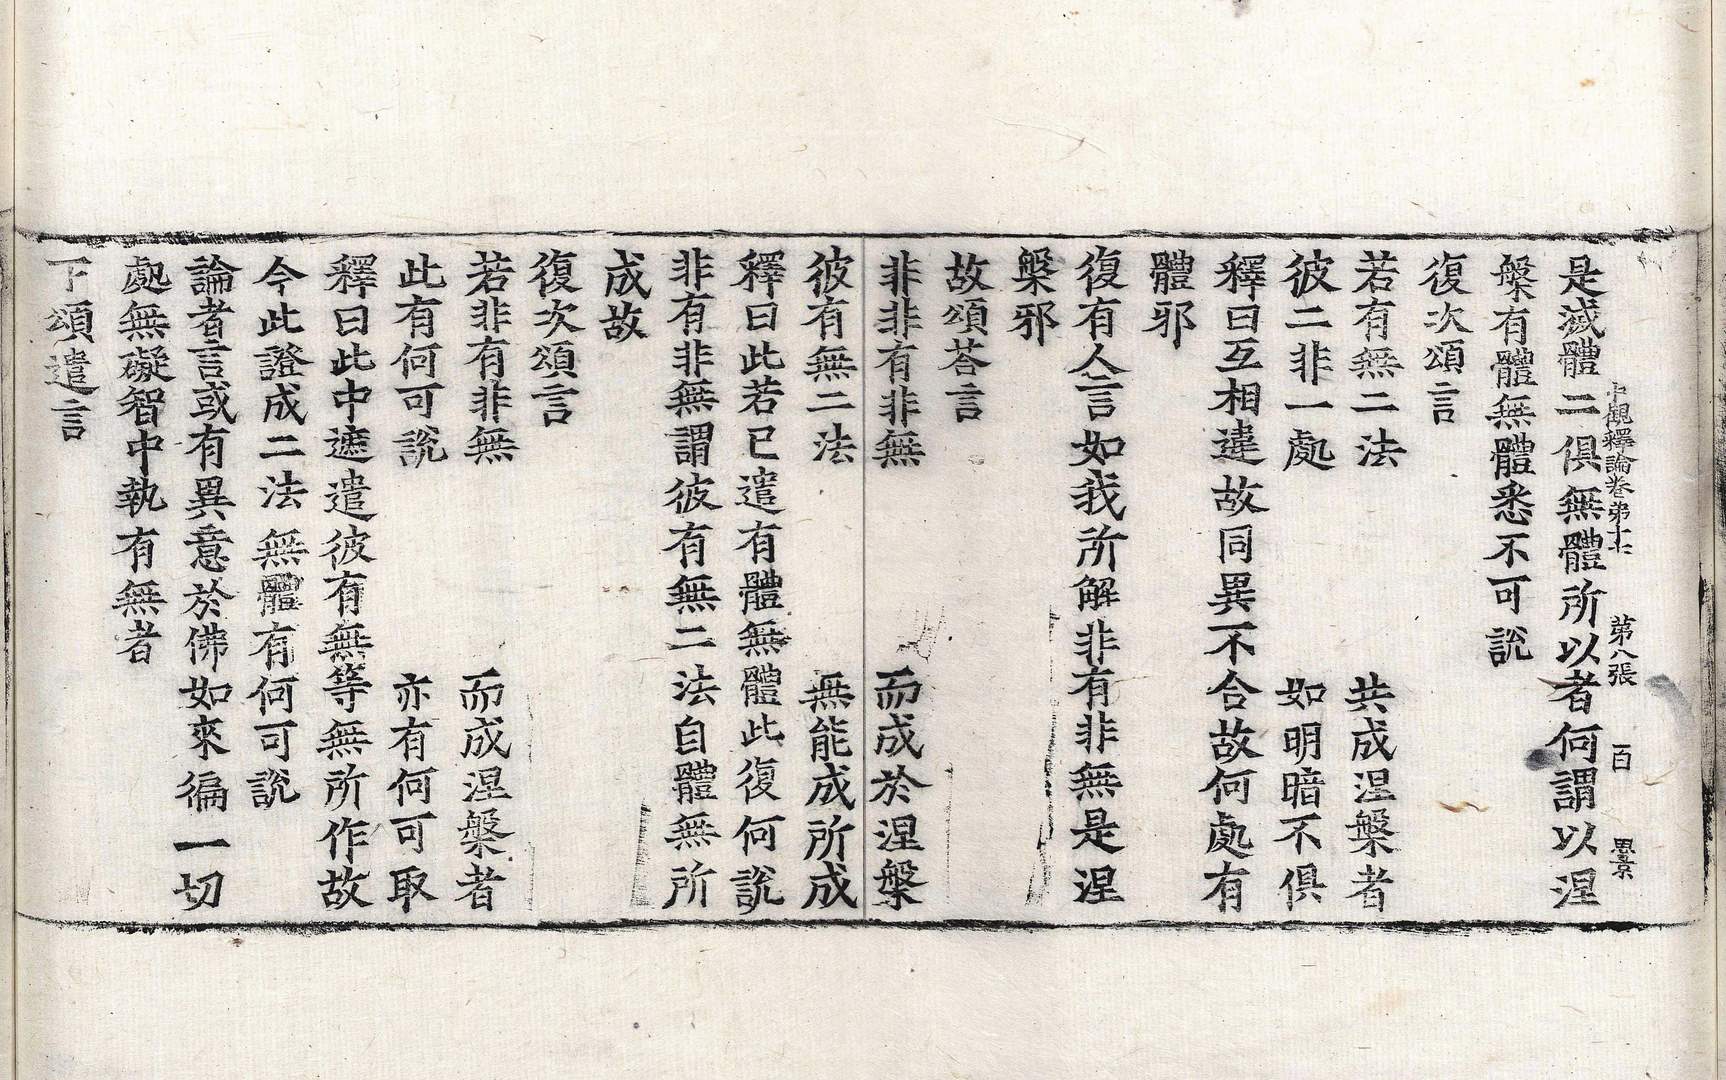 中觀釋論卷第十七　第八張　百　思景
是滅體二俱無體所以者何謂以涅
槃有體無體悉不可說
復次頌言
若有無二法　共成涅槃者
彼二非一處　如明暗不俱
釋曰互相違故同異不合故何處有
體邪
復有人言如我所解非有非無是涅
槃邪
故頌荅言
非非有非無　而成於涅槃
彼有無二法　無能成所成
釋曰此若已遣有體無體此復何說
非有非無謂彼有無二法自體無所
成故
復次頌言
若非有非無　而成涅槃者
此有何可說　亦有何可取
釋曰此中遮遣彼有無等無所作故
今此證成二法無體有何可說
論者言或有異意於佛如來徧一切
處無礙智中執有無者
下頌遣言